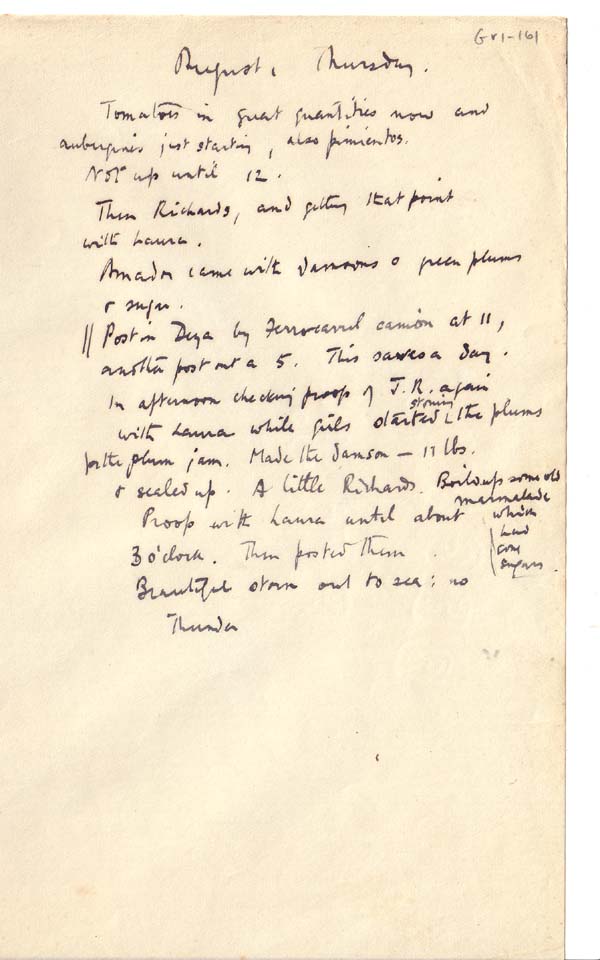 Gr1-161
August, Thursday.
Tomatoes in great quantities now and
aubergines just starting, also pimientos.
Not up until 12.
Then Richards, and getting that point
with Laura.
Amador came with damsons & green plums
& sugar.
|| Post in Deya by Ferrocarril camion at 11,
another post out at 5. This saves a day.
In afternoon checking proofs of J.R. again
with Laura while girls started stoning the plums
for the plum jam. Made the damson — 11 lbs.
& sealed up. A little Richards. Boiled up some old
marmalade
Proofs with Laura until about which
had
3 o'clock. Then posted them.
gone
sugary.
Beautiful storm out to sea: no
Thunder